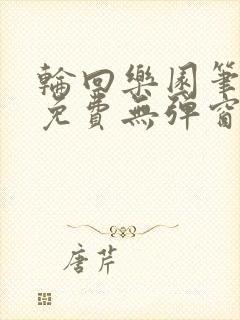 輪回樂園筆
免費無彈窗
唐芹